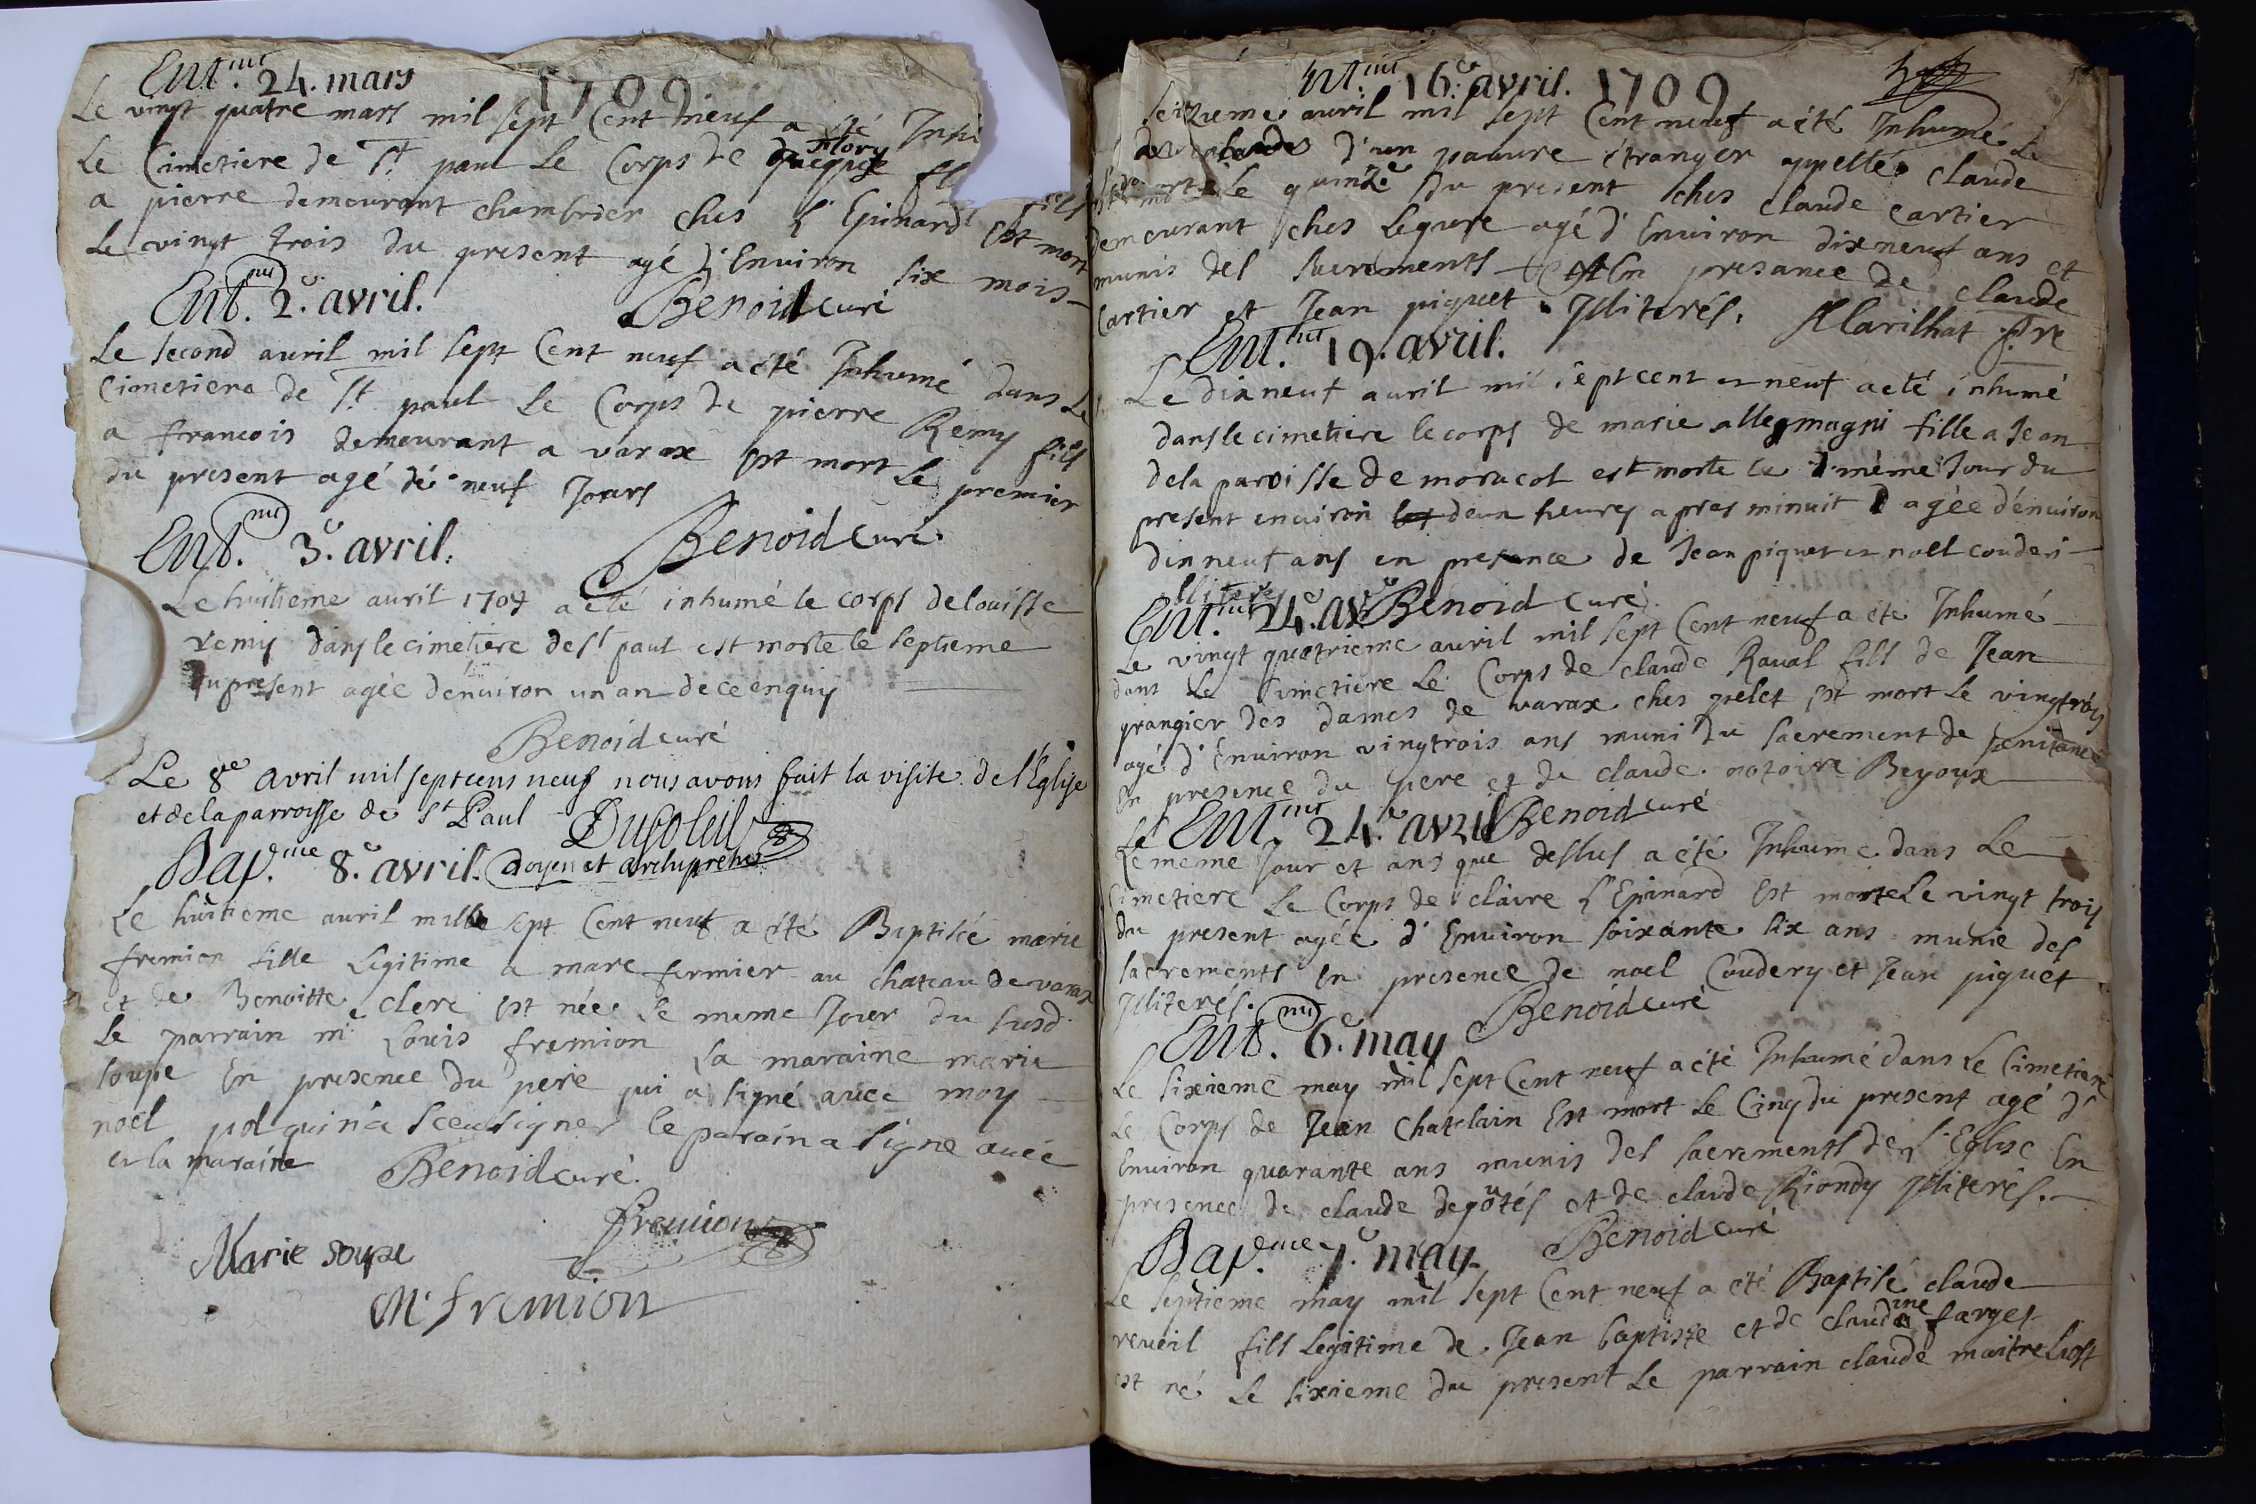 Ent.nt 24. mars 1709
Le vingt quatre mars mil sept Cent neuf a eté Inhu
Le Cimetiere de St. paul Le Corps de flory
a pierre demeurant chambrier ches L'Epinard Est mort
Le vingt trois du present agé d'Environ six mois
Benoid curé
Ent.nt 2.e avril.
Le second auril mil sept Cent neuf a eté Inhumé dans Le
Cimetiere de St. paul Le Corps de pierre Remy fils
a francois demeurant a varax Est mort Le premier
du present agé de neuf Jours
Benoid curé.
Ent.nt 3.e avril.
Le huitieme auril 1709 a eté inhumé le corps de louisse
remy dans le cimetiere de st paul est morte le septieme
du present agée d'enuiron un an de ce enquy
Benoid curé
Le 8e avril mil sept cens neuf nous avons fait la visite de l'Eglise
et de la parroisse de St Paul Dusoleil
doyen et archiprehtre
Bap.me 8.e avril.
Le huitieme auril mille sept Cent neuf a eté Baptisée marie
fremion fille Legitime a marc fermier au chateau de varax
et de Benoitte clerc Est née Le meme Jour du susd.
Le parrain mr Louis fremion La maraine marie
soupe En presence du pere qui a signé avec moy
noël pol qui n'a sceu signer le parain a signe auec
et la maraine
Benoid curé.
fremion
Marie soupe
M. fremion
Ent.nt 16.e avril. 1709
seizieme auril mil sept Cent neuf a eté Inhumé Le
d'un pauure etranger appellé claude
mort Le quinze du present ches claude cartier
demeurant ches Lequre agé d'Environ dixneuf ans et
munis des sacrements En presance de claude
Cartier et Jean piquet Illiterés. Marilhat ptre
Ent.nt 19. avril.
Le dixneuf auril mil sept cent et neuf a eté inhumé
dans le cimetiere le corps de marie allegmagni fille a Jean
de la paroisse de moracol est morte le même Jour du
present enuiron deux heures apres minuit agée d'enuiron
dixneuf ans en presence de Jean piquet et noel couderi
Illiterés Benoid curé
Ent.nt 24.e av
Le vingt quatrieme auril mil sept Cent neuf a eté Inhumé
dans Le Cimetiere Le Corps de claude Raual fils de Jean
grangier des dames de varax ches pelet Est mort Le vingtrois
agé d'Environ vingtrois ans muni du sacrement de penitance
En presence du pere et de claude notoire Beyoux
Benoid curé
Ent.nt 24.e avril
Le meme Jour et ans que dessus a eté Inhumé dans Le
Cimetiere Le Corps de claire L'Epinard Est morte Le vingt trois
du present agée d'Environ soixante six ans munie des
sacrements En presence de noel Coudery et Jean piquet
Illiterés. Benoid curé
Ent.nt 6.e may
Le sixieme may mil sept Cent neuf a eté Inhumé dans Le Cimetiere
Le Corps de Jean Chatelain Est mort Le Cinq du present agé d'
Environ quarante ans munis des sacrements de L'Eglise En
presence de claude depotés et de claude Riondy Illiterés.
Benoid curé
Bap.eme 7.e may
Le septieme may mil sept Cent neuf a eté Baptisé claude
reueil fils Legitime de Jean baptiste et de claudine farges
est né Le sixieme du present Le parrain claude maitre